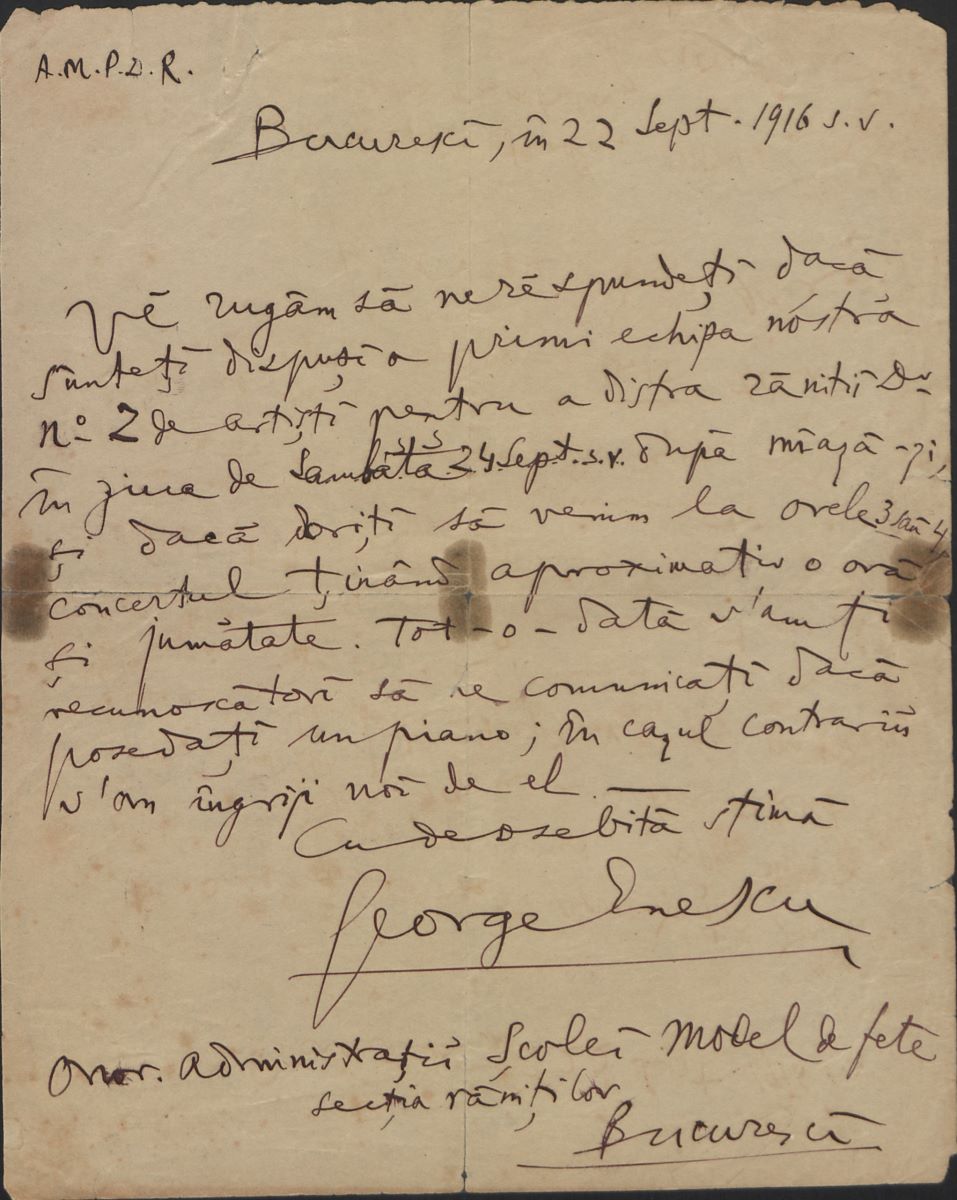 A.M.P.D.R.
Bucurescĭ, în 22 Sept. 1916 s.v.
Vĕ rugăm să ne rĕspundețĭ dacă
sunțețĭ dispușĭ a primi echipa nóstră
No 2 de artiștĭ pentru a distra răniții Dv
în ziua de Sambătă 24 Sept. s.v. după miază-zi,
și dacă dorițĭ să venim la orele 3 saŭ 4,
concertul ținând aproximativ o oră
și jumătate. Tot-o-dată v'am fi
recunoscătorĭ să ne comunicațĭ dacă
posedațĭ un piano; în cazul contrariŭ
v'om îngriji noĭ de el.
Cu deosebită stimă
George Enescu
Onor. Administrațiĭ Școleĭ Model de fete
secția răniților
Bucurescĭ